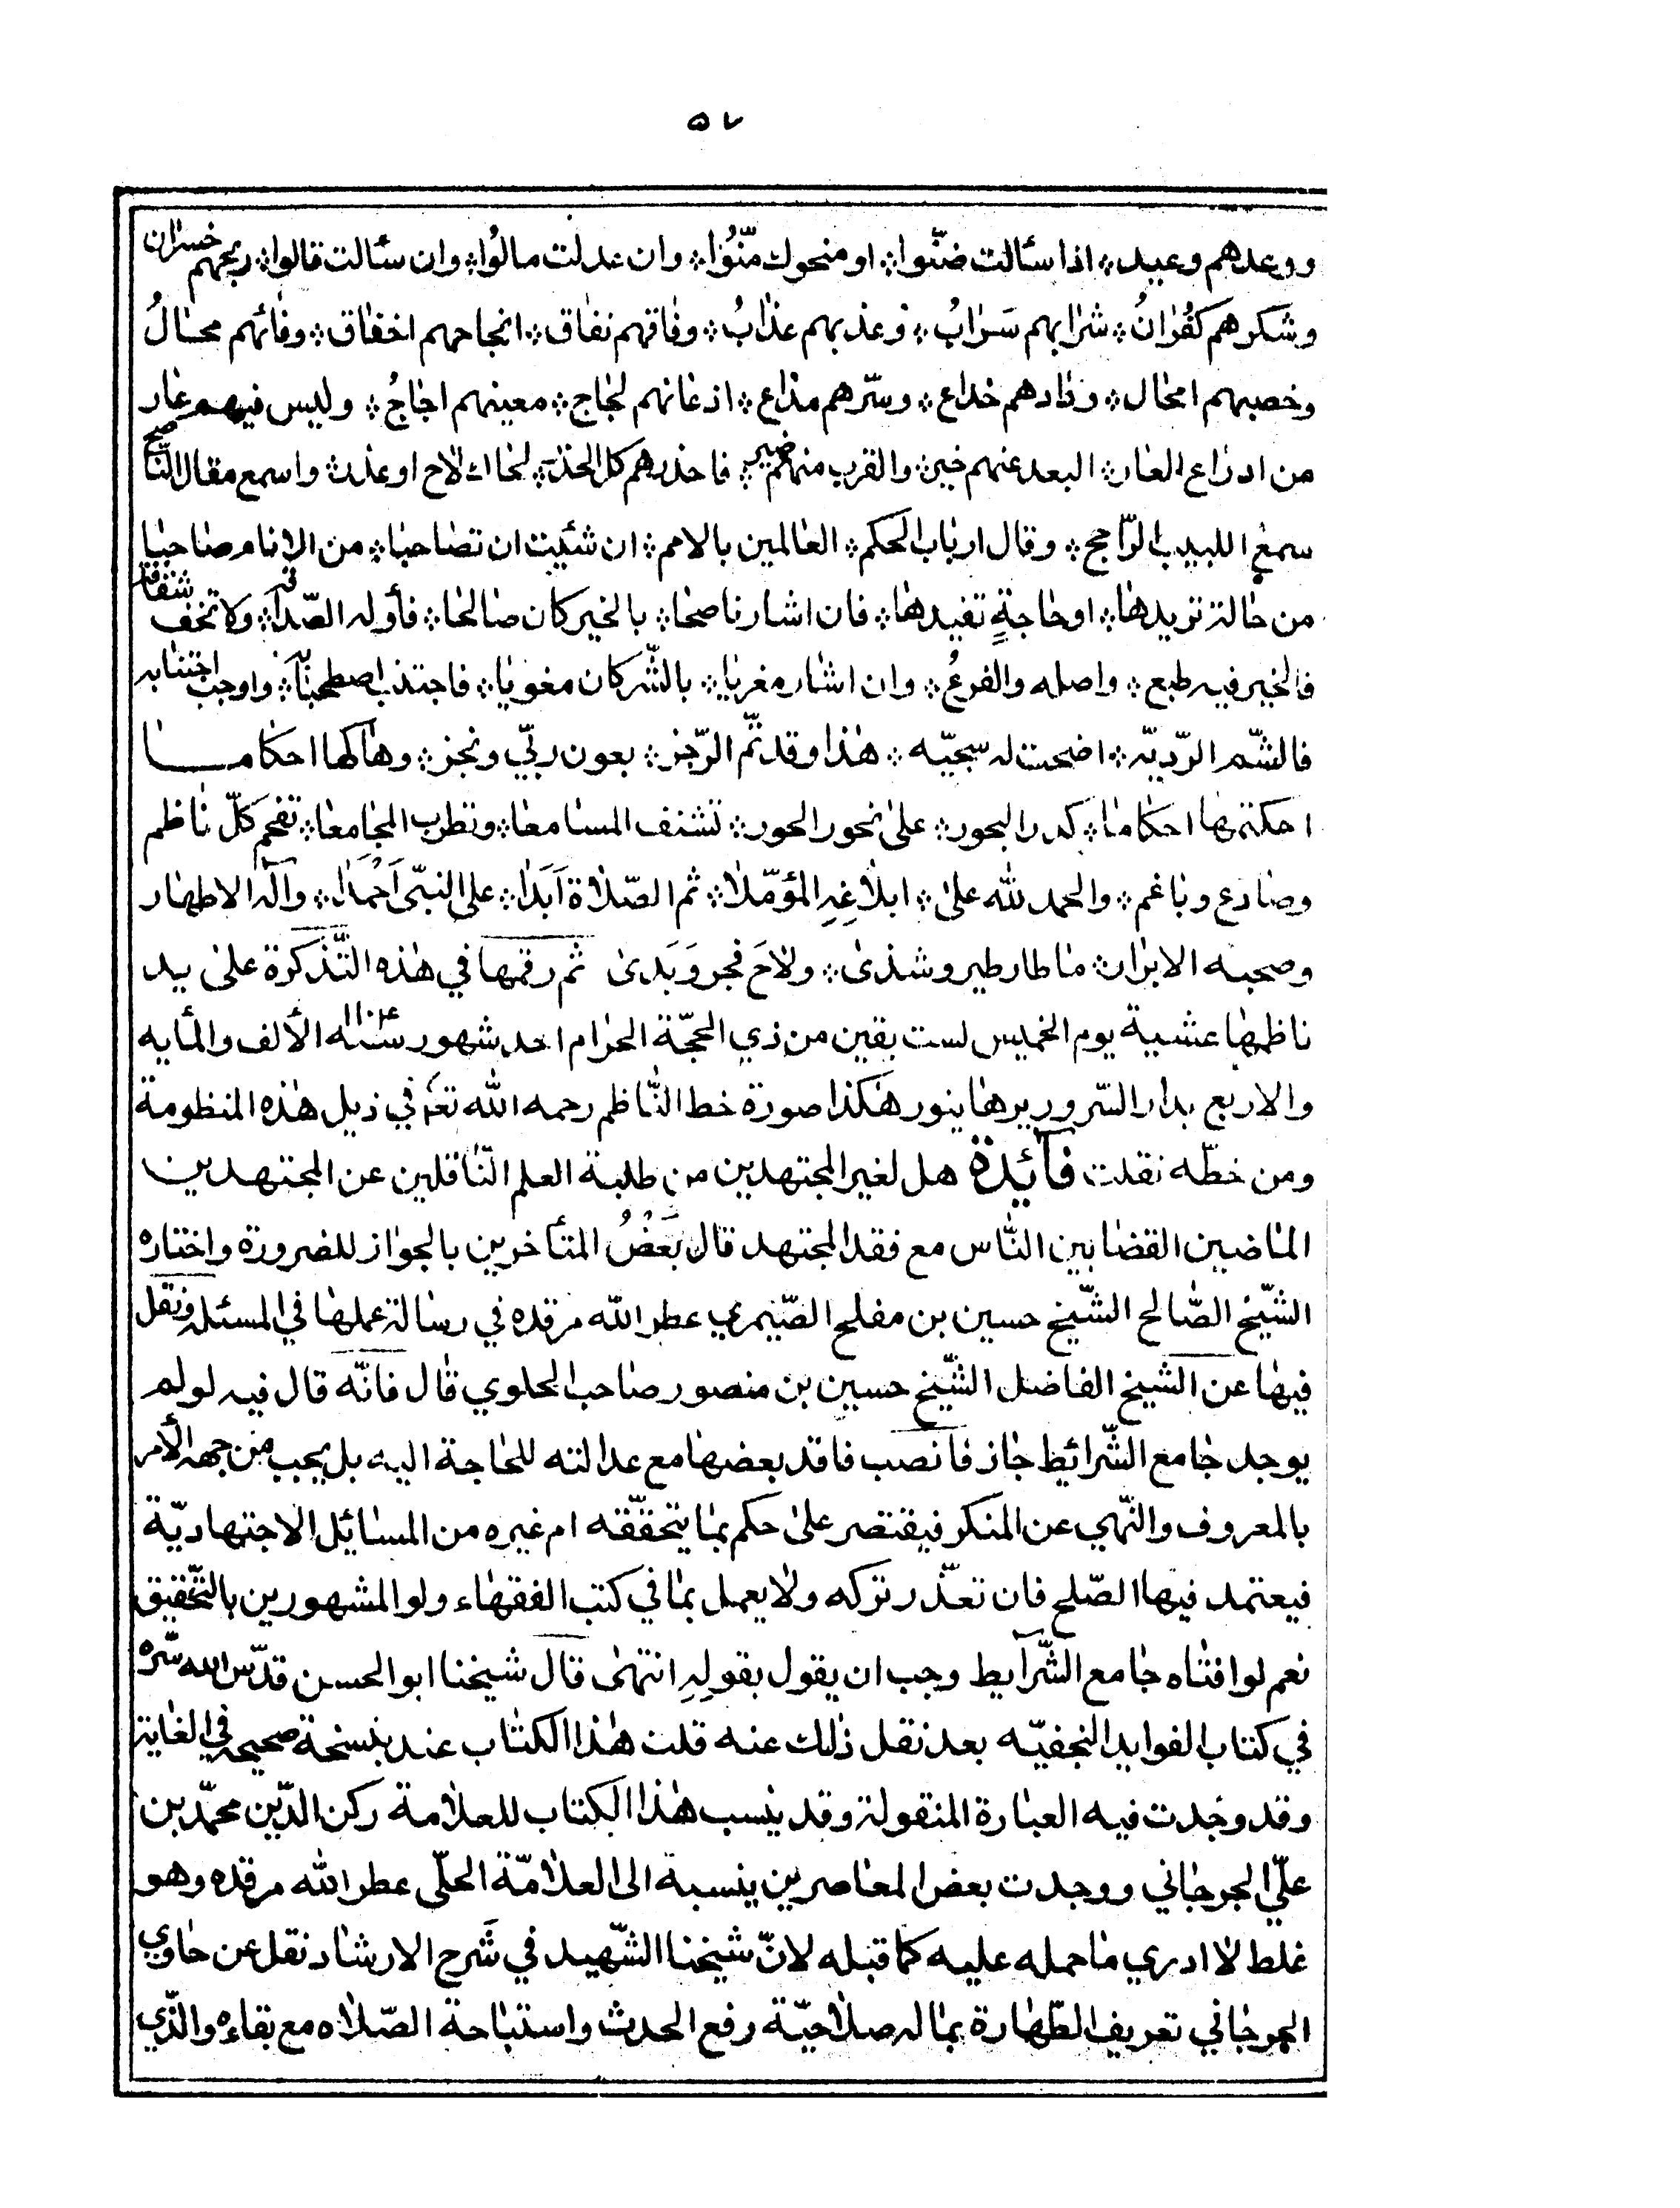 ٥٧
ووعدهم وعيد ؞ اذا سألت ضنّوا ؞ او منحوك منّوا ؞ وان عدلت مالوا ؞ وان سألت قالوا ؞ ربحهم خسران
وشكرهم كفران ؞ شرابهم سراب ؞ وعذبهم عذاب ؞ وفاقهم نفاق ؞ انجاحهم اخفاق ؞ وفائهم محال
وخصبهم امحال ؞ ودادهم خداع ؞ وسرّهم مذاع ؞ اذعانهم لجاج ؞ معينهم اجاج ؞ وليس فيهم عار
من ادراع العار ؞ البعد عنهم خير ؞ والقرب منهم ضير ؞ فاحذرهم كل الحذر ؞ لحاك لاح او عذر ؞ واسمع مقال الناصح
سمع اللبيب الرّاجح ؞ وقال ارباب الحكم ؞ العالمين بالامم ؞ ان شئت ان تصاحبا ؞ من الانام صاحبا
من حالة تريدها ؞ او حاجةٍ تفيدها ؞ فان اشار ناصحا ؞ بالخير كان صالحا ؞ فأوله الصّداقه ؞ ولا تخف شقاقه
فالخير فيه طبع ؞ واصله والفرع ؞ وان اشار مغريا ؞ بالشّر كان مغويا ؞ فاجتنب اصطحابه ؞ واوجب اجتنابه
فالشّيم الرّديّه ؞ اضحت له سجيّه ؞ هذا وقد تمّ الرّجز ؞ بعون ربّي ونجز ؞ وهاكها احكاما
احكتمها احكاما ؞ كدر البحور ؞ على نحور الحور ؞ تشنف المسامعا ؞ وتطرب المجامعا ؞ تفحم كلّ ناظم
وصادع وباغم ؞ والحمد لله على ؞ ابلاغه المؤمّلا ؞ ثم الصّلاة ابدا ؞ على النبيّ احمدا ؞ وآله الاطهار
وصحبه الابرار ؞ ما طار طير وشذى ؞ ولاح فجر وبدى ثم رقمها في هذه التّذكرة على يد
ناظمها عشية يوم الخميس لست بقين من ذي الحجّة الحرام احد شهور سنه ١١٠٤ الألف والمأيه
والاربع بدار السّرور برهاينور هكذا صورة خط النّاظم رحمه الله تعم في ذيل هذه المنظومة
ومن خطّه نقلت فآئدة هل لغير المجتهدين من طلبة العلم النّاقلين عن المجتهدين
الماضين القضا بين النّاس مع فقد المجتهد قال بعض المتأخرين بالجواز للضرورة واختاره
الشّيخ الصّالح الشّيخ حسين بن مفلح الصّيمري عطر الله مرقده في رسالة عملها في المسئله ونقل
فيها عن الشيخ الفاضل الشّيخ حسين بن منصور صاحب الحاوي قال فانّه قال فيه لو لم
يوجد جامع الشّرائط جاز فانصب فاقد بعضها مع عدالته للحاجة اليه بل يجب من جهة الأمر
بالمعروف والنّهي عن المنكر فيقتصر على حكم بما يتحقّقه ام غيره من المسائل الاجتهاديّة
فيعتمد فيها الصّلح فان تعذّر تركه ولا يعمل بما في كتب الفقهاء ولو المشهورين بالتّحقيق
نعم لو افتاه جامع الشّرآيط وجب ان يقول بقوله انتهى قال شيخنا ابو الحسن قدّس الله سرّه
في كتاب الفوايد النجفيّه بعد نقل ذلك عنه قلت هذا الكتاب عندي نسخة صحيحه في الغاية
وقد وجدت فيه العبارة المنقولة وقد ينسب هذا الكتاب للعلامة ركن الدّين محمّد بن
عليّ الجرجاني ووجدت بعض المعاصرين ينسبه الى العلامّة الحلّى عطر الله مرقده وهو
غلط لا ادري ما حمله عليه كما قبله لانّ شيخنا الشّهيد في شرح الارشاد نقل عن حاوي
الجرجاني تعريف الطّهارة بما له صلاحيّة رفع الحدث واستباحة الصّلاه مع بقاءه والذّي